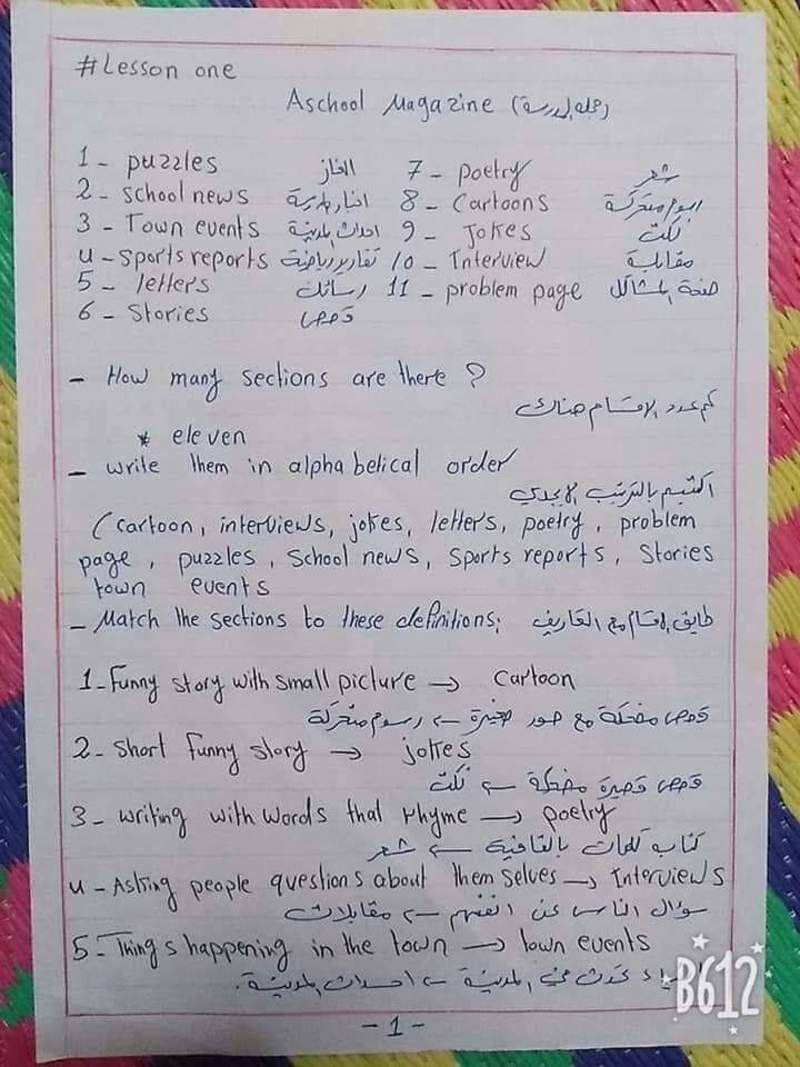 #Lesson one
Aschool Magazine (مجلة المدرسة)
1- puzzles الغاز 7- poetry شعر
2- school news اخبار المدرسة 8- Cartoons رسوم متحركة
3- Town events احداث المدينة 9- Jokes نكت
4- sports reports تقارير رياضية 10- Interview مقابلة
5- letters رسائل 11- problem page صفحة المشاكل
6- Stories قصص
- How many sections are there ?
كم عدد الاقسام هناك
* eleven
- write them in alphabelical order
اكتبهم بالترتيب الابجدي
(cartoon, interviews, jokes, letters, poetry, problem
page, puzzles, School news, sports reports, Stories
town events
- Match the sections to these definitions: طابق الاقسام مع التعاريف
1-Funny story with small picture → cartoon
قصص مضحكة مع صور صغيرة ← رسوم متحركة
2- short funny story → jokes
قصص قصيرة مضحكة ← نكت
3- writing with words that rhyme → poetry
كتاب كلمات بالقافية ← شعر
4- Asking people questions about them selves → Interviews
سؤال الناس عن انفسهم ← مقابلات
5- Things happening in the town → town events
تحدث في المدينة ← احداث المدينة.
B612
-1-